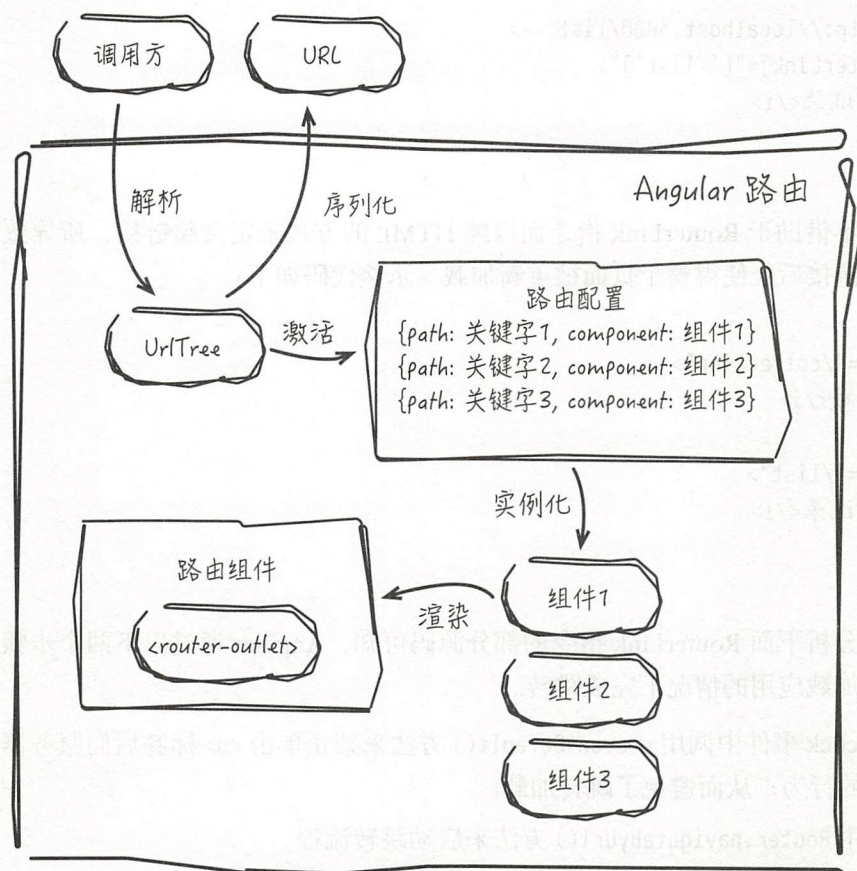 调用方
URL
解析
序列化
Angular 路由
UrlTree
激活
路由配置
{path: 关键字1, component: 组件1}
{path: 关键字2, component: 组件2}
{path: 关键字3, component: 组件3}
实例化
路由组件
<router-outlet>
渲染
组件1
组件2
组件3